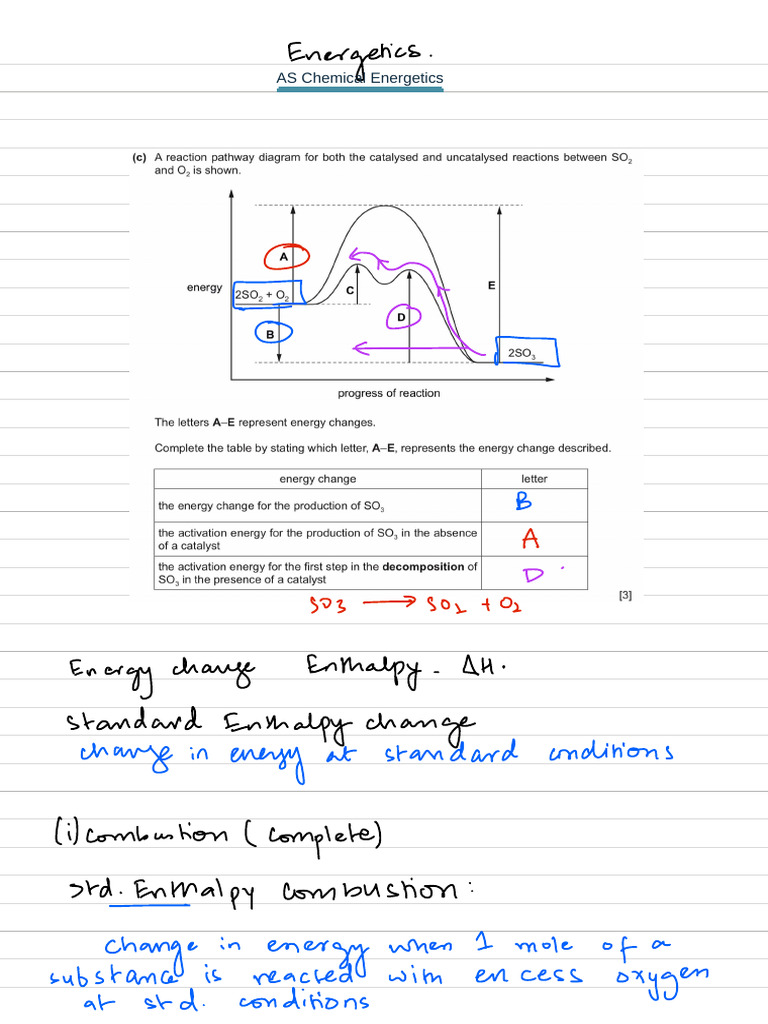 Energetics.
AS Chemical Energetics
(c) A reaction pathway diagram for both the catalysed and uncatalysed reactions between SO₂
and O₂ is shown.
A
energy
2SO₂ + O₂
C
E
D
B
2SO₃
progress of reaction
The letters A–E represent energy changes.
Complete the table by stating which letter, A–E, represents the energy change described.
energy change letter
the energy change for the production of SO₃ B
the activation energy for the production of SO₃ in the absence
of a catalyst A
the activation energy for the first step in the decomposition of
SO₃ in the presence of a catalyst D
[3]
SO3 → SO2 + O2
Energy change Enthalpy - ΔH.
Standard Enthalpy change
change in energy at standard conditions
(i) combustion (complete)
std. Enthalpy combustion:
change in energy when 1 mole of a
substance is reacted with encess oxygen
at std. conditions